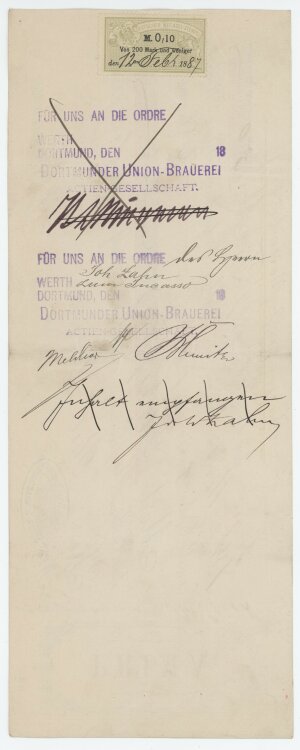 M. 0,10
Von 200 Mark und weniger
den 12 Febr. 1887
FÜR UNS AN DIE ORDRE
WERTH
DORTMUND, DEN 18
DORTMUNDER UNION-BRAUEREI
ACTIEN-GESELLSCHAFT.
FÜR UNS AN DIE ORDRE des Herrn
Joh Zahn
WERTH zum Incasso
DORTMUND, DEN 18
DORTMUNDER UNION-BRAUEREI
ACTIEN-GESELLSCHAFT
Inhalt empfangen